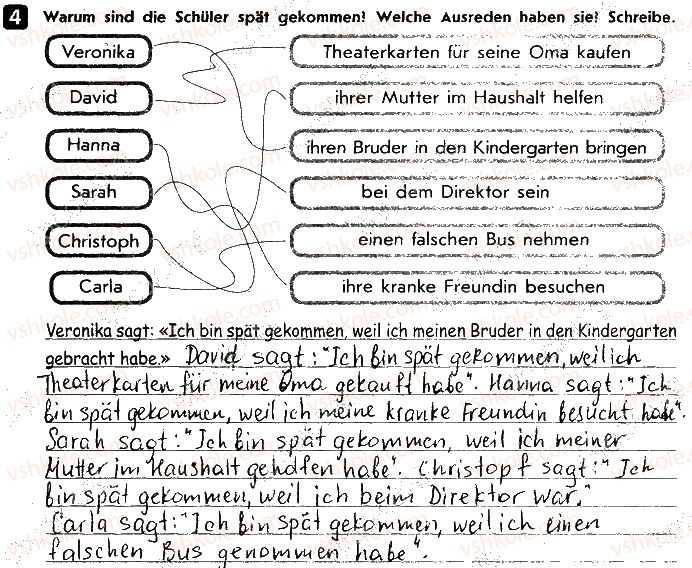 4 Warum sind die Schüler spät gekommen? Welche Ausreden haben sie? Schreibe.
Veronika
Theaterkarten für seine Oma kaufen
David
ihrer Mutter im Haushalt helfen
Hanna
ihren Bruder in den Kindergarten bringen
Sarah
bei dem Direktor sein
Christoph
einen falschen Bus nehmen
Carla
ihre kranke Freundin besuchen
Veronika sagt: «Ich bin spät gekommen, weil ich meinen Bruder in den Kindergarten
gebracht habe.» David sagt: "Ich bin spät gekommen, weil ich
Theaterkarten für meine Oma gekauft habe". Hanna sagt: "Ich
bin spät gekommen, weil ich meine kranke Freundin besucht habe".
Sarah sagt: "Ich bin spät gekommen, weil ich meiner
Mutter im Haushalt geholfen habe". Christopf sagt: "Ich
bin spät gekommen, weil ich beim Direktor war."
Carla sagt: "Ich bin spät gekommen, weil ich einen
falschen Bus genommen habe".
vshkole.com